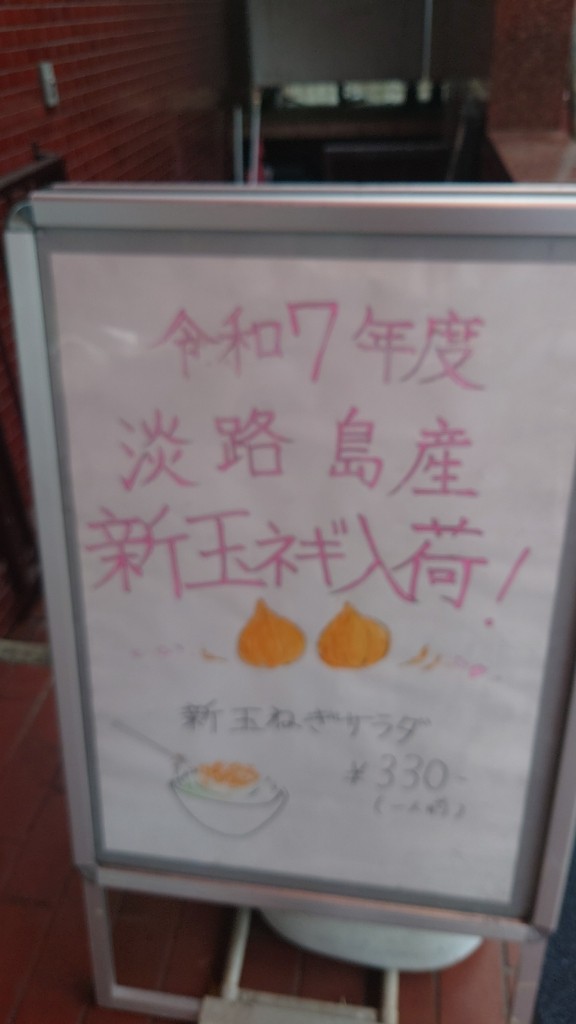 令和7年度
淡路島産
新玉ネギ入荷!
新玉ねぎサラダ
¥330-